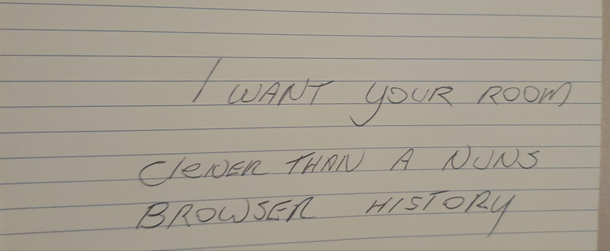 I WANT YOUR ROOM
CleNER THAN A NUNS
BROWSER HISTORY